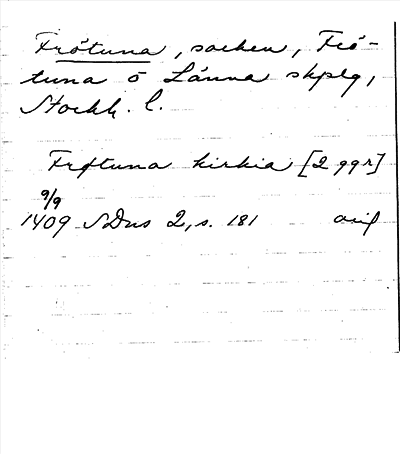 Frötuna, socken, Frö-
tuna o Länna skplg,
Stockh. l.
Frøtuna kirkia [2 ggr]
9/9
1409 SDns 2, s. 181 orig